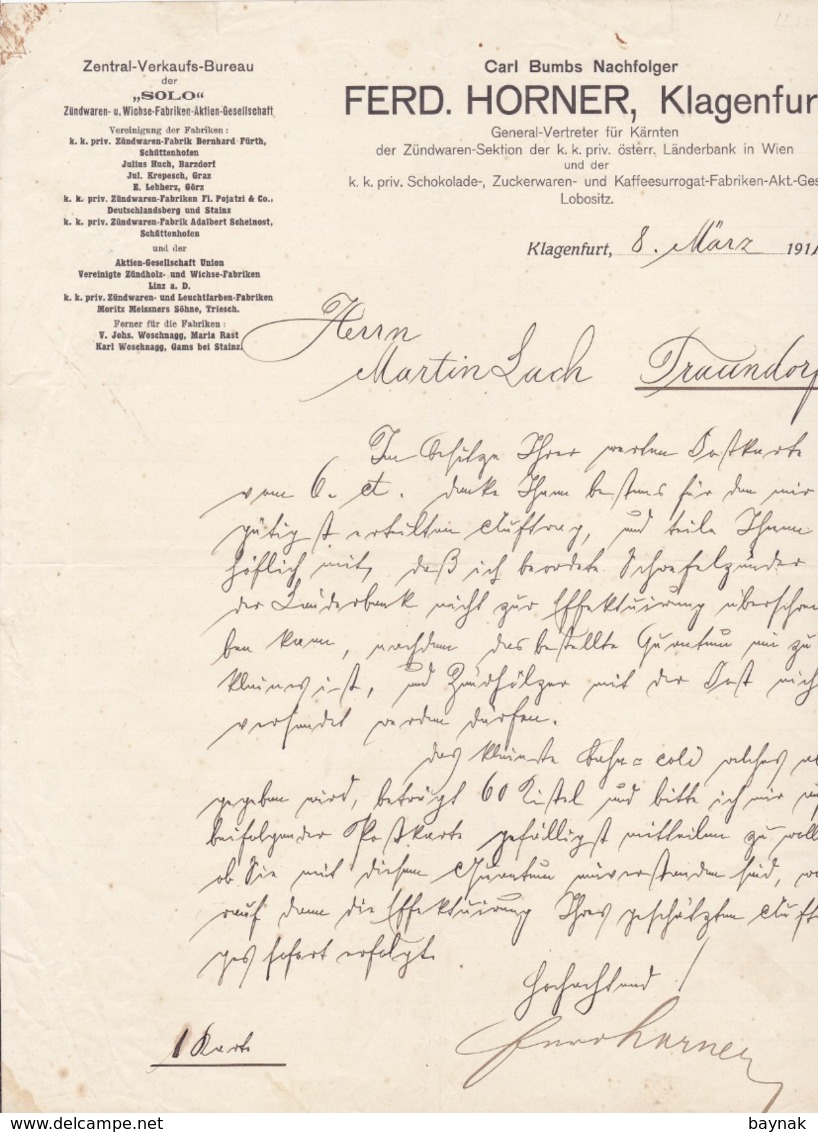 Zentral-Verkaufs-Bureau
der
„SOLO“
Zündwaren- u. Wichse-Fabriken-Aktien-Gesellschaft
Vereinigung der Fabriken:
k. k. priv. Zündwaren-Fabrik Bernhard Fürth,
Schüttenhofen
Julius Huch, Barzdorf
Jul. Krepesch, Graz
E. Lebherz, Görz
k. k. priv. Zündwaren-Fabriken Fl. Pojatzi & Co.,
Deutschlandsberg und Stainz
k. k. priv. Zündwaren-Fabrik Adalbert Scheinost,
Schüttenhofen
und der
Aktien-Gesellschaft Union
Vereinigte Zündholz- und Wichse-Fabriken
Linz a. D.
k. k. priv. Zündwaren- und Leuchtfarben-Fabriken
Moritz Meissners Söhne, Triesch.
Ferner für die Fabriken:
V. Johs. Woschnagg, Maria Rast
Karl Woschnagg, Gams bei Stainz.
Carl Bumbs Nachfolger
FERD. HORNER, Klagenfur
General-Vertreter für Kärnten
der Zündwaren-Sektion der k. k. priv. österr. Länderbank in Wien
und der
k. k. priv. Schokolade-, Zuckerwaren- und Kaffeesurrogat-Fabriken-Akt.-Ges
Lobositz.
Klagenfurt, 8. März 191
Herrn
Martin Lach Traundorf
Im Besitze Ihrer werten Postkarte
vom 6. ct. danke Ihnen bestens für den mir
gütigst erteilten Auftrag, und teile Ihnen
höflich mit, daß ich beorderte Schwefelzünder
der Länderbank nicht zur Effektuirung überschrei
ben kann, nachdem das bestellte Quantum mir zu
kleines ist, und Zündhölzer mit der Post nich
versendet werden dürfen.
Das kleinste Bahn=coli welches ab
gegeben wird, beträgt 60 Kistel und bitte ich mir mit
beifolgender Postkarte gefälligst mitteilen zu woll
ob Sie mit diesem Quantum einverstanden sind, wo
rauf dann die Effektuirung Ihres geschätzten Auftr
ges sofort erfolgt.
Hochachtend!
Ferd Horner
1 Karte
baynak